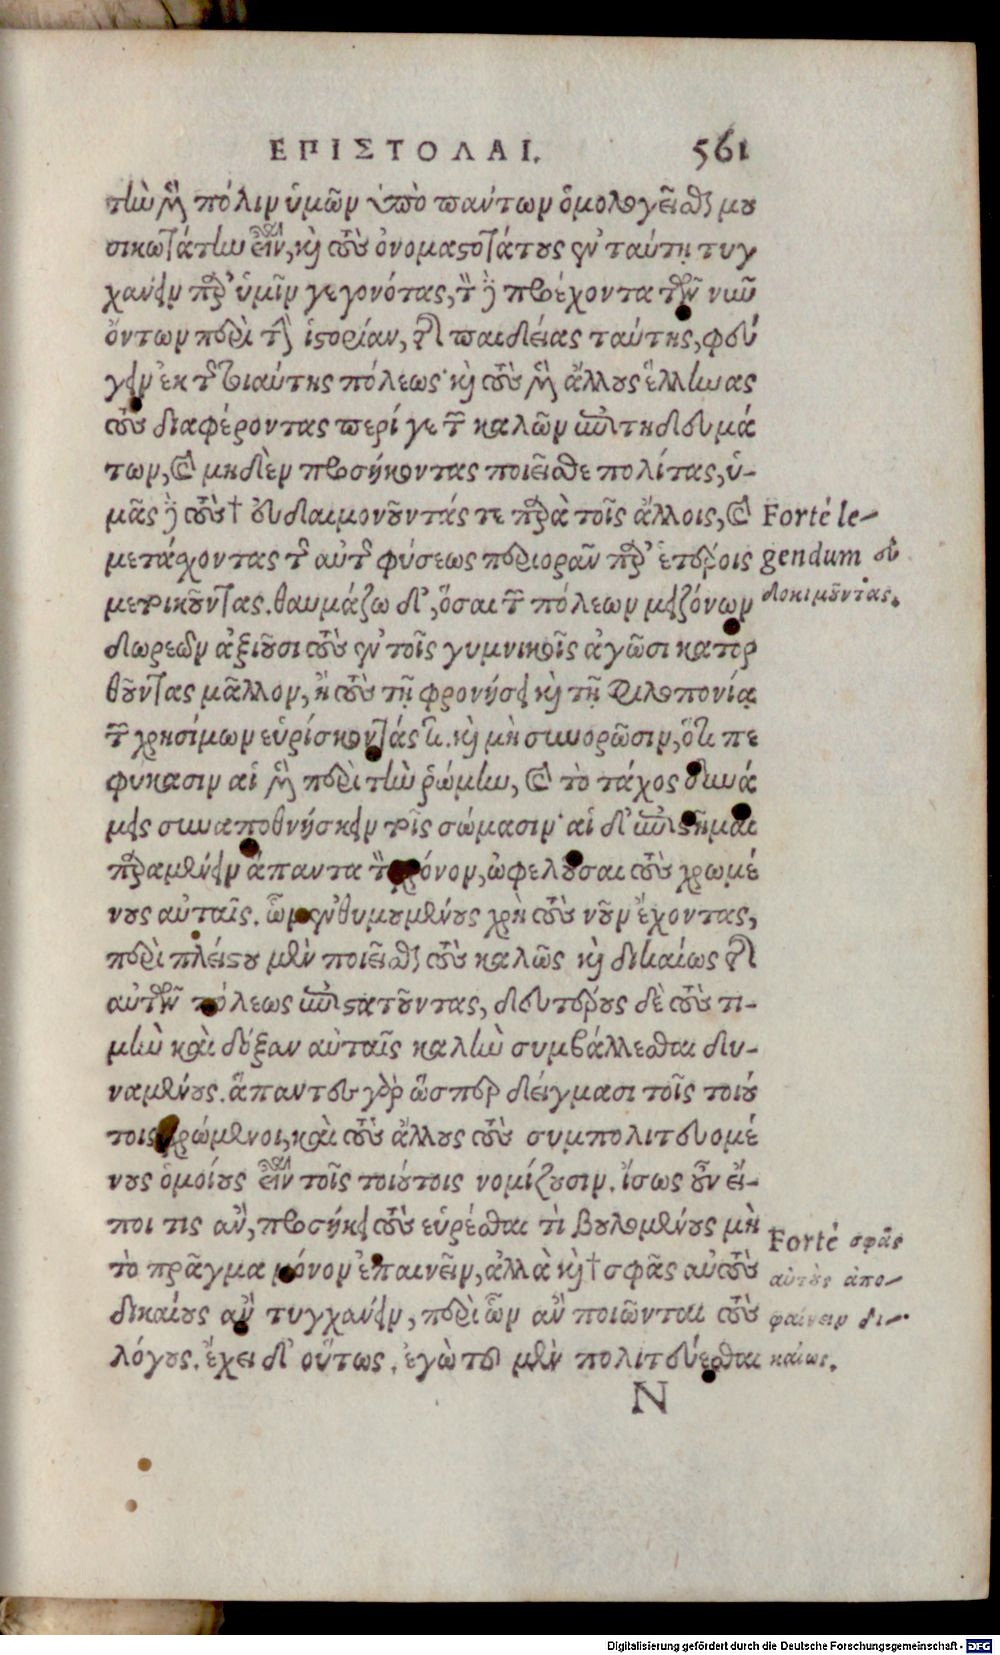 ΕΠΙΣΤΟΛΑΙ. 561
τὴν μὲν πόλιν ὑμῶν ὑπὸ πάντων ὁμολογεῖσθαι μου
σικωτάτην εἶναι, καὶ τοὺς ὀνομαστοτάτους ἐν ταύτῃ τυγ
χάνειν παρ' ὑμῖν γεγονότας, τὸν δὲ προέχοντα τῶν νῦν
ὄντων περὶ τὴν ἱστορίαν, τῆς παιδείας ταύτης, φεύ
γειν ἐκ τῆς τοιαύτης πόλεως· καὶ τοὺς μὲν ἄλλους ἕλληνας
τοὺς διαφέροντας περί γε τῶν καλῶν ἐπιτηδευμά
των, καὶ μηδὲν προσήκοντας ποιεῖσθε πολίτας, ὑ-
μᾶς δὲ τοὺς † εὐδαιμονοῦντάς τε παρὰ τοῖς ἄλλοις, καὶ
μετάσχοντας τῆς αὐτῆς φύσεως περιορᾶν παρ' ἑτέροις
μετοικοῦντας. θαυμάζω δ', ὅσαι τῶν πόλεων μειζόνων
δωρεῶν ἀξιοῦσι τοὺς ἐν τοῖς γυμνικοῖς ἀγῶσι κατορ
θοῦντας μᾶλλον, ἢ τοὺς τῇ φρονήσει καὶ τῇ φιλοπονίᾳ
τῶν χρησίμων εὑρίσκοντάς τι. καὶ μὴ συνορῶσιν, ὅτι πε
φύκασιν αἱ μὲν περὶ τὴν ῥώμην, καὶ τὸ τάχος δυνά
μεις συναποθνήσκειν τοῖς σώμασιν· αἱ δ' ἐπιστῆμαι
παραμένειν ἅπαντα τὸν χρόνον, ὠφελοῦσαι τοὺς χρωμέ
νους αὐταῖς. ὧν ἐνθυμουμένους χρὴ τοὺς νοῦν ἔχοντας,
περὶ πλείστου μὲν ποιεῖσθαι τοὺς καλῶς καὶ δικαίως τῆς
αὑτῶν πόλεως ἐπιστατοῦντας, δευτέρους δὲ τοὺς τι-
μὴν καὶ δόξαν αὐταῖς καλὴν συμβάλλεσθαι δυ-
ναμένους. ἅπαντες γὰρ ὥσπερ δείγμασι τοῖς τοιού
τοις χρώμενοι, καὶ τοὺς ἄλλους τοὺς συμπολιτευομέ
νους ὁμοίους εἶναι τοῖς τοιούτοις νομίζουσιν. ἴσως οὖν εἴ-
ποι τις ἂν, προσήκει τοὺς εὑρέσθαι τὶ βουλομένους μὴ
τὸ πρᾶγμα μόνον ἐπαινεῖν, ἀλλὰ καὶ † σφᾶς αὐτοὺς
δικαίους ἂν τυγχάνειν, περὶ ὧν ἂν ποιῶνται τοὺς
λόγους. ἔχει δ' οὕτως. ἐγὼ τοῦ μὲν πολιτεύεσθαι
N
Forte le-
gendum εὐ
δοκιμοῦντας.
Forte σφᾶς
αὐτοὺς ἀπο-
φαίνειν δι-
καίως.
Digitalisierung gefördert durch die Deutsche Forschungsgemeinschaft - DFG